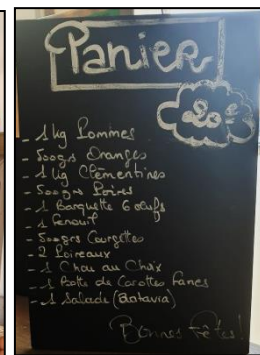 Panier
20€
- 1 kg Pommes
- 500grs Oranges
- 1 kg Clémentines
- 500grs Poires
- 1 Barquette 6 œufs
- 1 Fenouil
- 500grs Courgettes
- 2 Poireaux
- 1 Chou au Choix
- 1 Botte de Carottes Fanes
- 1 Salade (Batavia)
Bonnes Fêtes!